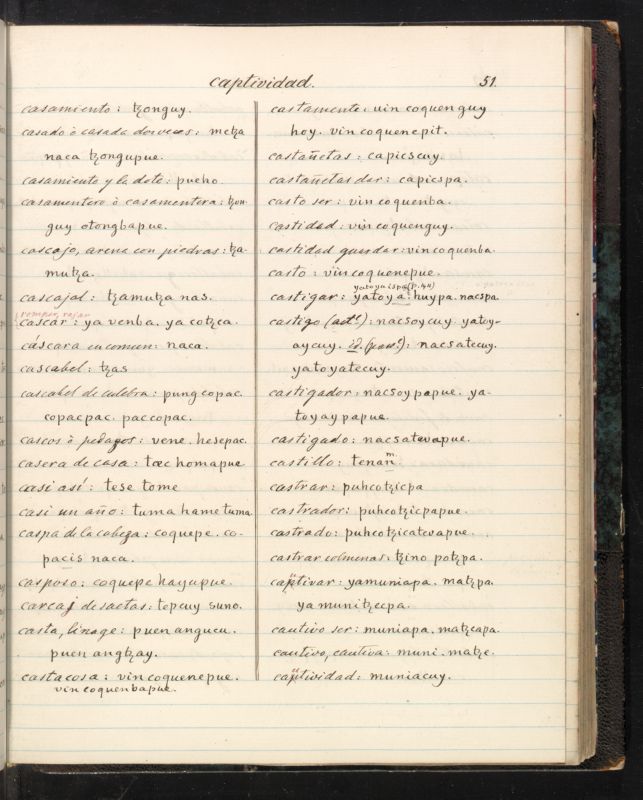 captividad. 51.
casamiento: tzonguy.
casado ò casada dos veces: metza
naca tzongupue.
casamiento y la dote: pueho.
casamentero ò casamentera: tzon-
guy otongbapue.
cascajo, arena con piedras: tza-
mutza.
cascajal: tzamutza nas.
romper, rajar
cascar: ya venba. ya cotzca.
cáscara en comun: naca.
cascabel: tzas
cascabel de culebra: pung copac.
copacpac. paccopac.
cascos ò pedazos: vene. hesepac.
casera de casa: tæc homapue
casi así: tese tome
casi un año: tuma hame tuma.
caspa de la cabeza: coquepe. co-
pacis naca.
casposo: coquepe hayupue.
carcaj de saetas: topcuy suno.
casta, linage: puen angucu.
puen angtzay.
casta cosa: vin coquenepue.
vin coquenbapue.
castamente: vin coquenguy
hoy. vin coquenepit.
castañetas: capicscuy.
castañetas dar: capicspa.
casto ser: vin coquenba.
castidad: vin coquenguy.
castidad guardar: vin coquenba.
casto: vin coquenepue.
yatoyaispæ (p. 44)
castigar: yatoya: huypa. nacspa.
castigo (act.): nacsoycuy. yatoy-
aycuy. id. (pas.): nacsatecuy.
yatoyatecuy.
castigador: nacsoypapue. ya-
toyaypapue.
castigado: nacsatevapue.
castillo: tenan.
m
castrar: puhcotzicpa
castrador: puhcotzicpapue.
castrado: puhcotzicatevapue.
castrar colmenas: tzino potzpa.
captivar: yamuniapa. matzpa.
yamunitzecpa.
cautivo ser: muniapa. matzcapa.
cautivo, cautiva: muni. matze.
captividad: muniacuy.